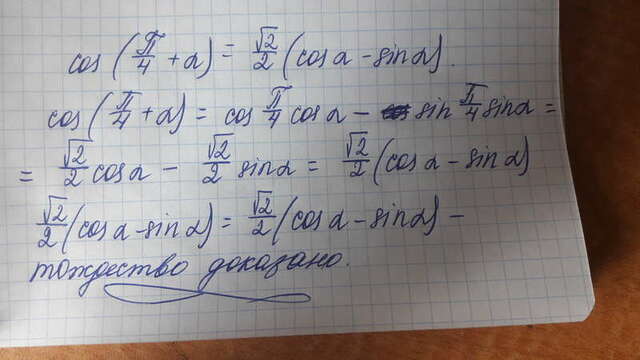 cos (π/4 + α) = √2/2 (cos α - sin α).
cos (π/4 + α) = cos π/4 cos α - sin π/4 sin α =
= √2/2 cos α - √2/2 sin α = √2/2 (cos α - sin α)
√2/2 (cos α - sin α) = √2/2 (cos α - sin α) -
тождество доказано.